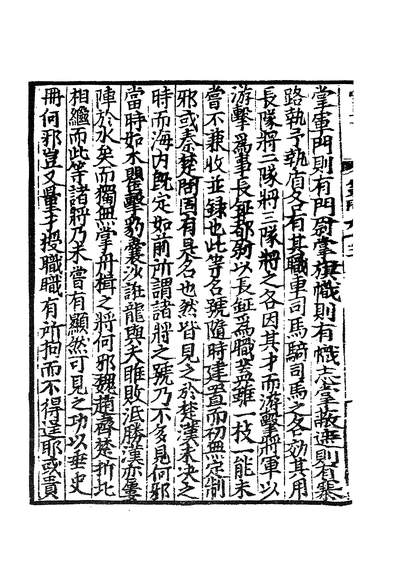 掌軍門則有門尉掌旗幟則有幟志掌敵遮則有寨
路執予執盾各有其職車司馬騎司馬之各効其用
長隊將二隊將三隊將之各因其才而游擊將軍以
游擊爲事長鈹都尉以長鈹爲職蓋雖一技一能未
嘗不兼收並録也此等名號隨時建置而初無定制
邪或秦楚間固有是名也然皆見之於楚漢未決之
時而海内旣定如前所謂諸將之號乃不多見何邪
當時如木罌擊豹囊沙誰龍與夫睢敗汦勝漢亦屢
陣於水矣而獨無掌舟楫之將何邪魏趙齊楚折北
相繼而此等諸將乃未嘗有顯然可見之功以垂史
冊何邪豈又量才授職職有所拘而不得逞耶或貴